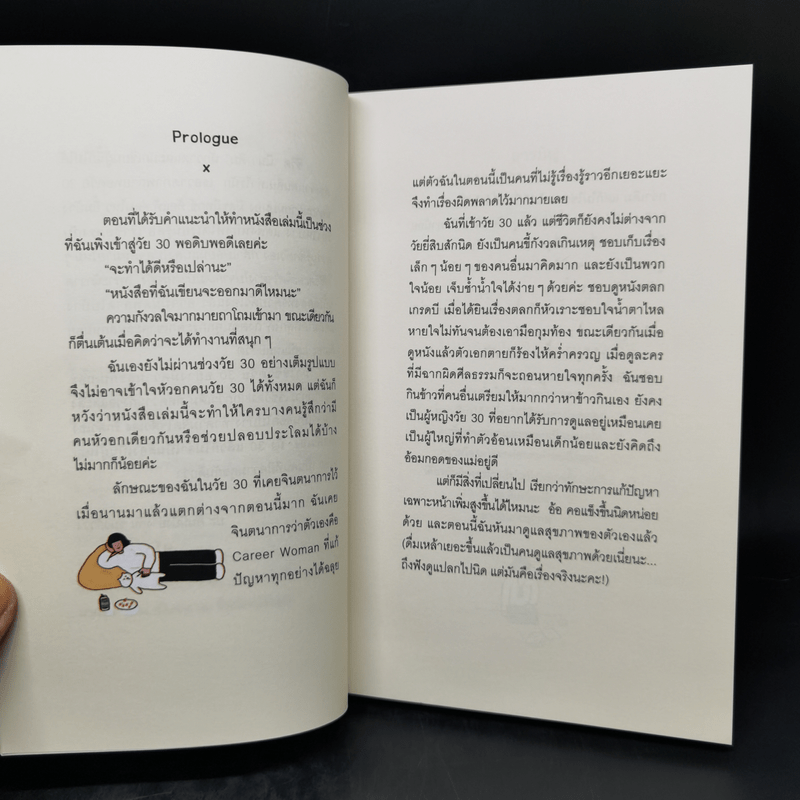 Prologue
x
ตอนที่ได้รับคำแนะนำให้ทำหนังสือเล่มนี้เป็นช่วง
ที่ฉันเพิ่งเข้าสู่วัย 30 พอดิบพอดีเลยค่ะ
“จะทำได้ดีหรือเปล่านะ”
“หนังสือที่ฉันเขียนจะออกมาดีไหมนะ”
ความกังวลใจมากมายถาโถมเข้ามา ขณะเดียวกัน
ก็ตื่นเต้นเมื่อคิดว่าจะได้ทำงานที่สนุก ๆ
ฉันเองยังไม่ผ่านช่วงวัย 30 อย่างเต็มรูปแบบ
จึงไม่อาจเข้าใจหัวอกคนวัย 30 ได้ทั้งหมด แต่ฉันก็
หวังว่าหนังสือเล่มนี้จะทำให้ใครบางคนรู้สึกว่ามี
คนหัวอกเดียวกันหรือช่วยปลอบประโลมได้บ้าง
ไม่มากก็น้อยค่ะ
ลักษณะของฉันในวัย 30 ที่เคยจินตนาการไว้
เมื่อนานมาแล้วแตกต่างจากตอนนี้มาก ฉันเคย
จินตนาการว่าตัวเองคือ
Career Woman ที่แก้
ปัญหาทุกอย่างได้ฉลุย
แต่ตัวฉันในตอนนี้เป็นคนที่ไม่รู้เรื่องรู้ราวอีกเยอะแยะ
จึงทำเรื่องผิดพลาดไว้มากมายเลย
ฉันที่เข้าวัย 30 แล้ว แต่ชีวิตก็ยังคงไม่ต่างจาก
วัยยี่สิบสักนิด ยังเป็นคนขี้กังวลเกินเหตุ ชอบเก็บเรื่อง
เล็ก ๆ น้อย ๆ ของคนอื่นมาคิดมาก และยังเป็นพวก
ใจน้อย เจ็บช้ำน้ำใจได้ง่าย ๆ ด้วยค่ะ ชอบดูหนังตลก
เกรดบี เมื่อได้ยินเรื่องตลกก็หัวเราะชอบใจน้ำตาไหล
หายใจไม่ทันจนต้องเอามือกุมท้อง ขณะเดียวกันเมื่อ
ดูหนังแล้วตัวเอกตายก็ร้องไห้คร่ำครวญ เมื่อดูละคร
ที่มีฉากผิดศีลธรรมก็จะถอนหายใจทุกครั้ง ฉันชอบ
กินข้าวที่คนอื่นเตรียมให้มากกว่าหาข้าวกินเอง ยังคง
เป็นผู้หญิงวัย 30 ที่อยากได้รับการดูแลอยู่เหมือนเคย
เป็นผู้ใหญ่ที่ทำตัวอ้อนเหมือนเด็กน้อยและยังคิดถึง
อ้อมกอดของแม่อยู่ดี
แต่ก็มีสิ่งที่เปลี่ยนไป เรียกว่าทักษะการแก้ปัญหา
เฉพาะหน้าเพิ่มสูงขึ้นได้ไหมนะ อ้อ คอแข็งขึ้นนิดหน่อย
ด้วย และตอนนี้ฉันหันมาดูแลสุขภาพของตัวเองแล้ว
(ดื่มเหล้าเยอะขึ้นแล้วเป็นคนดูแลสุขภาพด้วยเนี่ยนะ...
ถึงฟังดูแปลกไปนิด แต่มันคือเรื่องจริงนะคะ!)